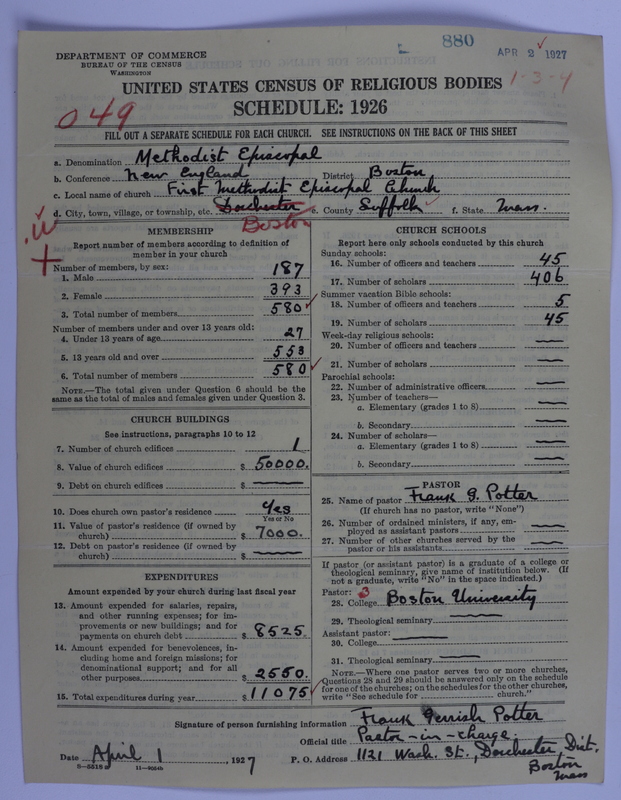 880
APR 2 1927
DEPARTMENT OF COMMERCE
BUREAU OF THE CENSUS
WASHINGTON
1-3-4
UNITED STATES CENSUS OF RELIGIOUS BODIES
SCHEDULE: 1926
049
FILL OUT A SEPARATE SCHEDULE FOR EACH CHURCH. SEE INSTRUCTIONS ON THE BACK OF THIS SHEET
a. Denomination Methodist Episcopal
b. Conference New England District Boston
c. Local name of church First Methodist Episcopal Church
d. City, town, village, or township, etc. Dorchester e. County Suffolk f. State Mass.
Boston
W
MEMBERSHIP
Report number of members according to definition of
member in your church
Number of members, by sex:
1. Male 187
2. Female 393
3. Total number of members 580
Number of members under and over 13 years old:
4. Under 13 years of age 27
5. 13 years old and over 553
6. Total number of members 580
NOTE.—The total given under Question 6 should be the
same as the total of males and females given under Question 3.
CHURCH BUILDINGS
See instructions, paragraphs 10 to 12
7. Number of church edifices 1
8. Value of church edifices $ 50000.
9. Debt on church edifices $
10. Does church own pastor's residence Yes
Yes or No
11. Value of pastor's residence (if owned by
church) $ 7000.
12. Debt on pastor's residence (if owned by
church) $
EXPENDITURES
Amount expended by your church during last fiscal year
13. Amount expended for salaries, repairs,
and other running expenses; for im-
provements or new buildings; and for
payments on church debt $ 8525.
14. Amount expended for benevolences, in-
cluding home and foreign missions; for
denominational support; and for all
other purposes $ 2550.
15. Total expenditures during year $ 11075
CHURCH SCHOOLS
Report here only schools conducted by this church
Sunday schools:
16. Number of officers and teachers 45
17. Number of scholars 406
Summer vacation Bible schools:
18. Number of officers and teachers 5
19. Number of scholars 45
Week-day religious schools:
20. Number of officers and teachers
21. Number of scholars
Parochial schools:
22. Number of administrative officers
23. Number of teachers—
a. Elementary (grades 1 to 8)
b. Secondary
24. Number of scholars—
a. Elementary (grades 1 to 8)
b. Secondary
PASTOR
25. Name of pastor Frank G. Potter
(If church has no pastor, write "None")
26. Number of ordained ministers, if any, em-
ployed as assistant pastors
27. Number of other churches served by the
pastor or his assistants
If pastor (or assistant pastor) is a graduate of a college or
theological seminary, give name of institution below. (If
not a graduate, write "No" in the space indicated.)
Pastor: 3
28. College Boston University
29. Theological seminary
Assistant pastor:
30. College
31. Theological seminary
NOTE.—Where one pastor serves two or more churches,
Questions 28 and 29 should be answered only on the schedule
for one of the churches; on the schedules for the other churches,
write "See schedule for church."
Signature of person furnishing information Frank Gerrish Potter
Official title Pastor-in-charge.
Date April 1, 1927 P. O. Address 1121 Wash. St., Dorchester Dist.
Boston
Mass
11—9554b